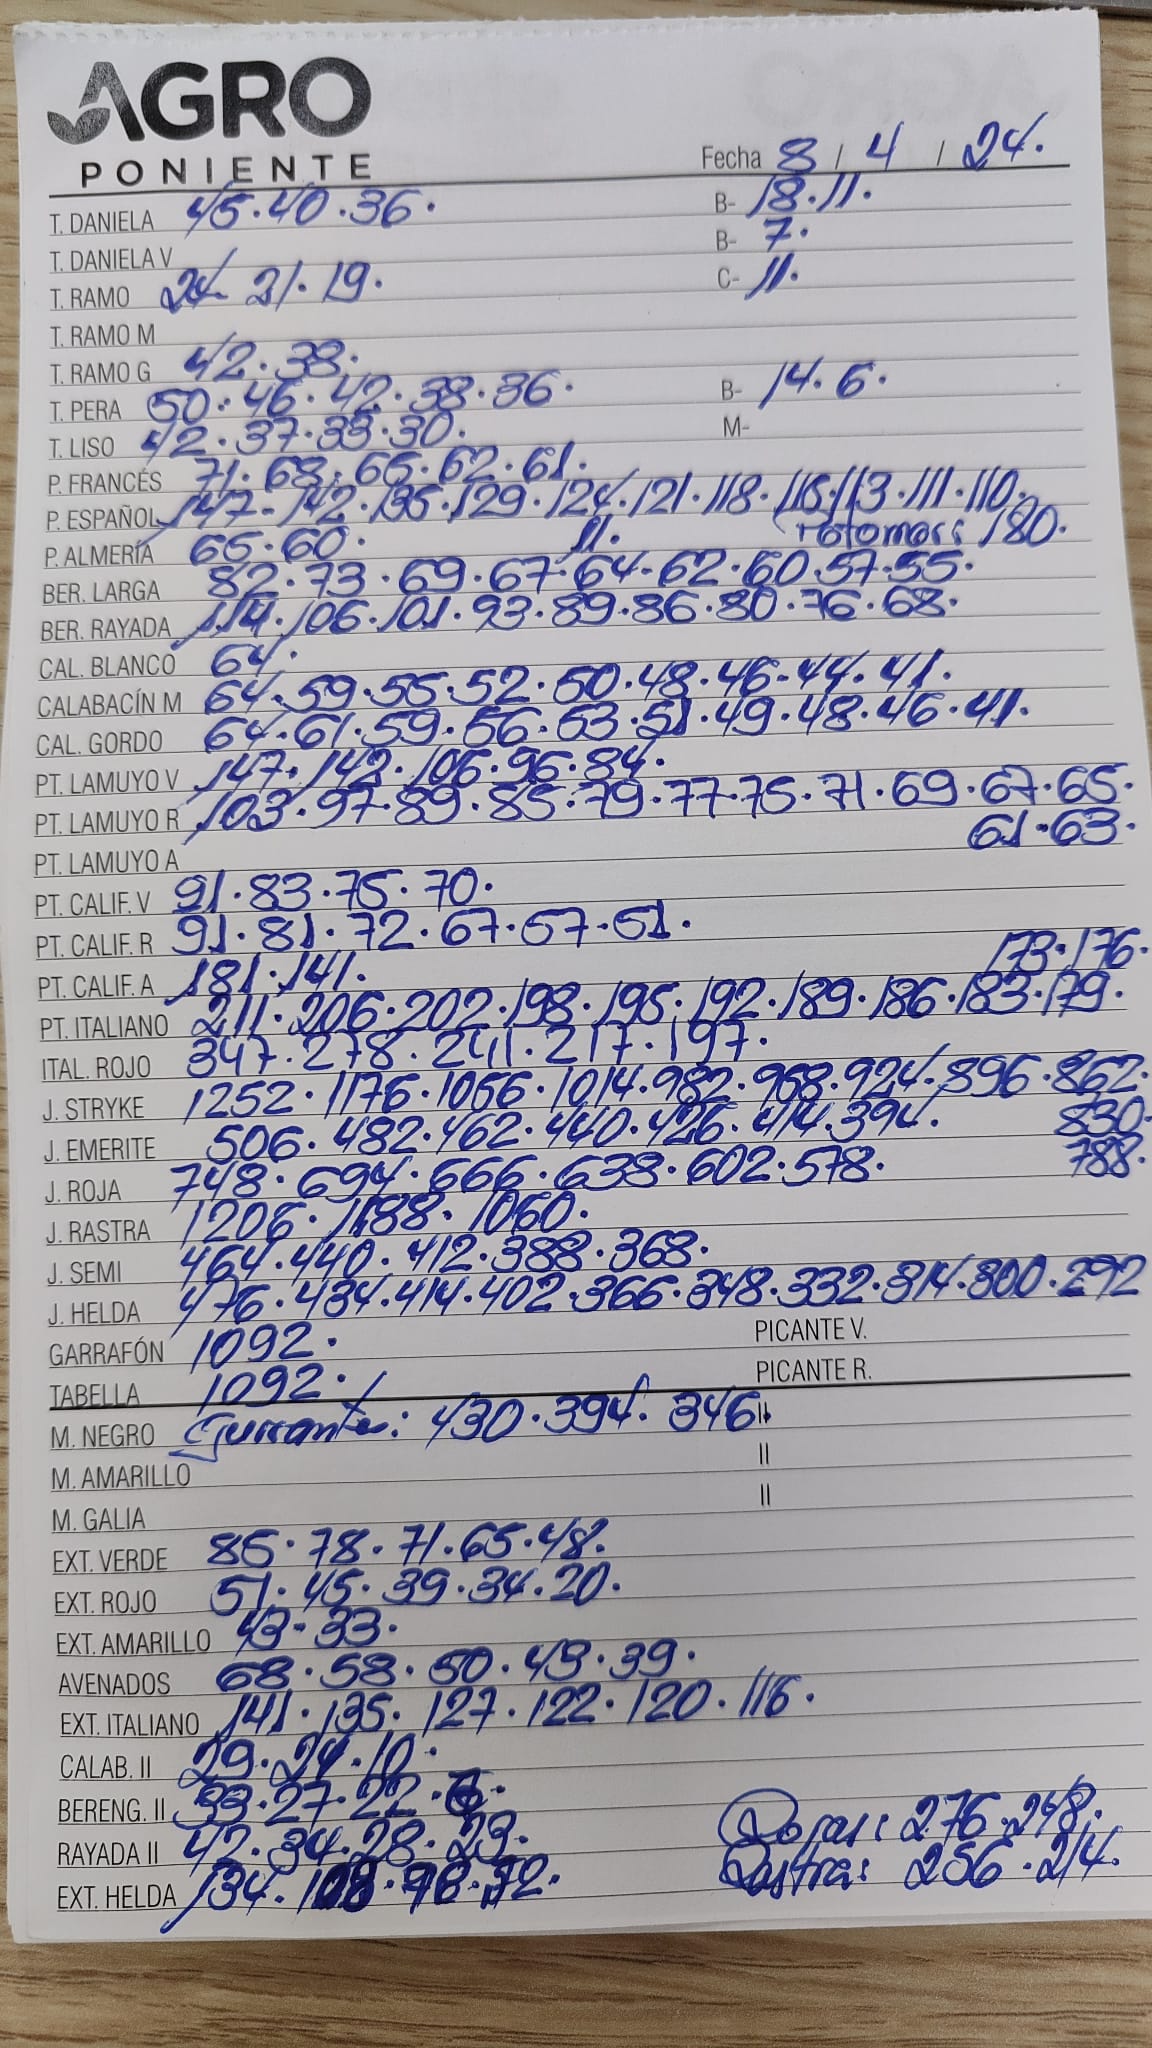 AGRO
PONIENTE
Fecha 8 / 4 / 24.
T. DANIELA 45.40.36. B- 18.11.
T. DANIELA V B- 7.
T. RAMO 24 21.19. C- 11.
T. RAMO M
T. RAMO G 42.38.
T. PERA 50.46.42.38.36. B- 14.6.
T. LISO 42.37.33.30. M-
P. FRANCÉS 71.68.65.62.61.
P. ESPAÑOL 147.142.135.129.124.121.118.115.113.111.110.
P. ALMERÍA 65.60. 11. 180.
BER. LARGA 82.73.69.67.64.62.60.57.55.
BER. RAYADA 114.106.101.93.89.86.80.76.68.
CAL. BLANCO 64.
CALABACÍN M 64.59.55.52.50.48.46.44.41.
CAL. GORDO 64.61.59.56.53.51.49.48.46.41.
PT. LAMUYO V 147.142.106.96.84.
PT. LAMUYO R 103.97.89.85.79.77.75.71.69.67.65.
PT. LAMUYO A 61.63.
PT. CALIF. V 91.83.75.70.
PT. CALIF. R 91.81.72.67.57.51.
PT. CALIF. A 181.141. 173.176.
PT. ITALIANO 211.206.202.198.195.192.189.186.183.179.
ITAL. ROJO 347.278.241.217.197.
J. STRYKE 1252.1176.1056.1014.982.958.924.896.862.
J. EMERITE 506.482.462.440.426.414.394. 830.
J. ROJA 748.694.666.638.602.578. 788.
J. RASTRA 1206.1188.1060.
J. SEMI 464.440.412.388.368.
J. HELDA 476.434.414.402.366.348.332.314.300.292
GARRAFÓN 1092. PICANTE V.
TABELLA 1092. PICANTE R.
M. NEGRO 430.394.346 II
M. AMARILLO II
M. GALIA II
EXT. VERDE 85.78.71.65.48.
EXT. ROJO 51.45.39.34.20.
EXT. AMARILLO 43.33.
AVENADOS 68.58.50.43.39.
EXT. ITALIANO 141.135.127.122.120.116.
CALAB. II 29.24.10.
BERENG. II 33.27.22.
RAYADA II 42.34.28.23. Rojas: 276.248.
EXT. HELDA 134. Rastra: 256.214.